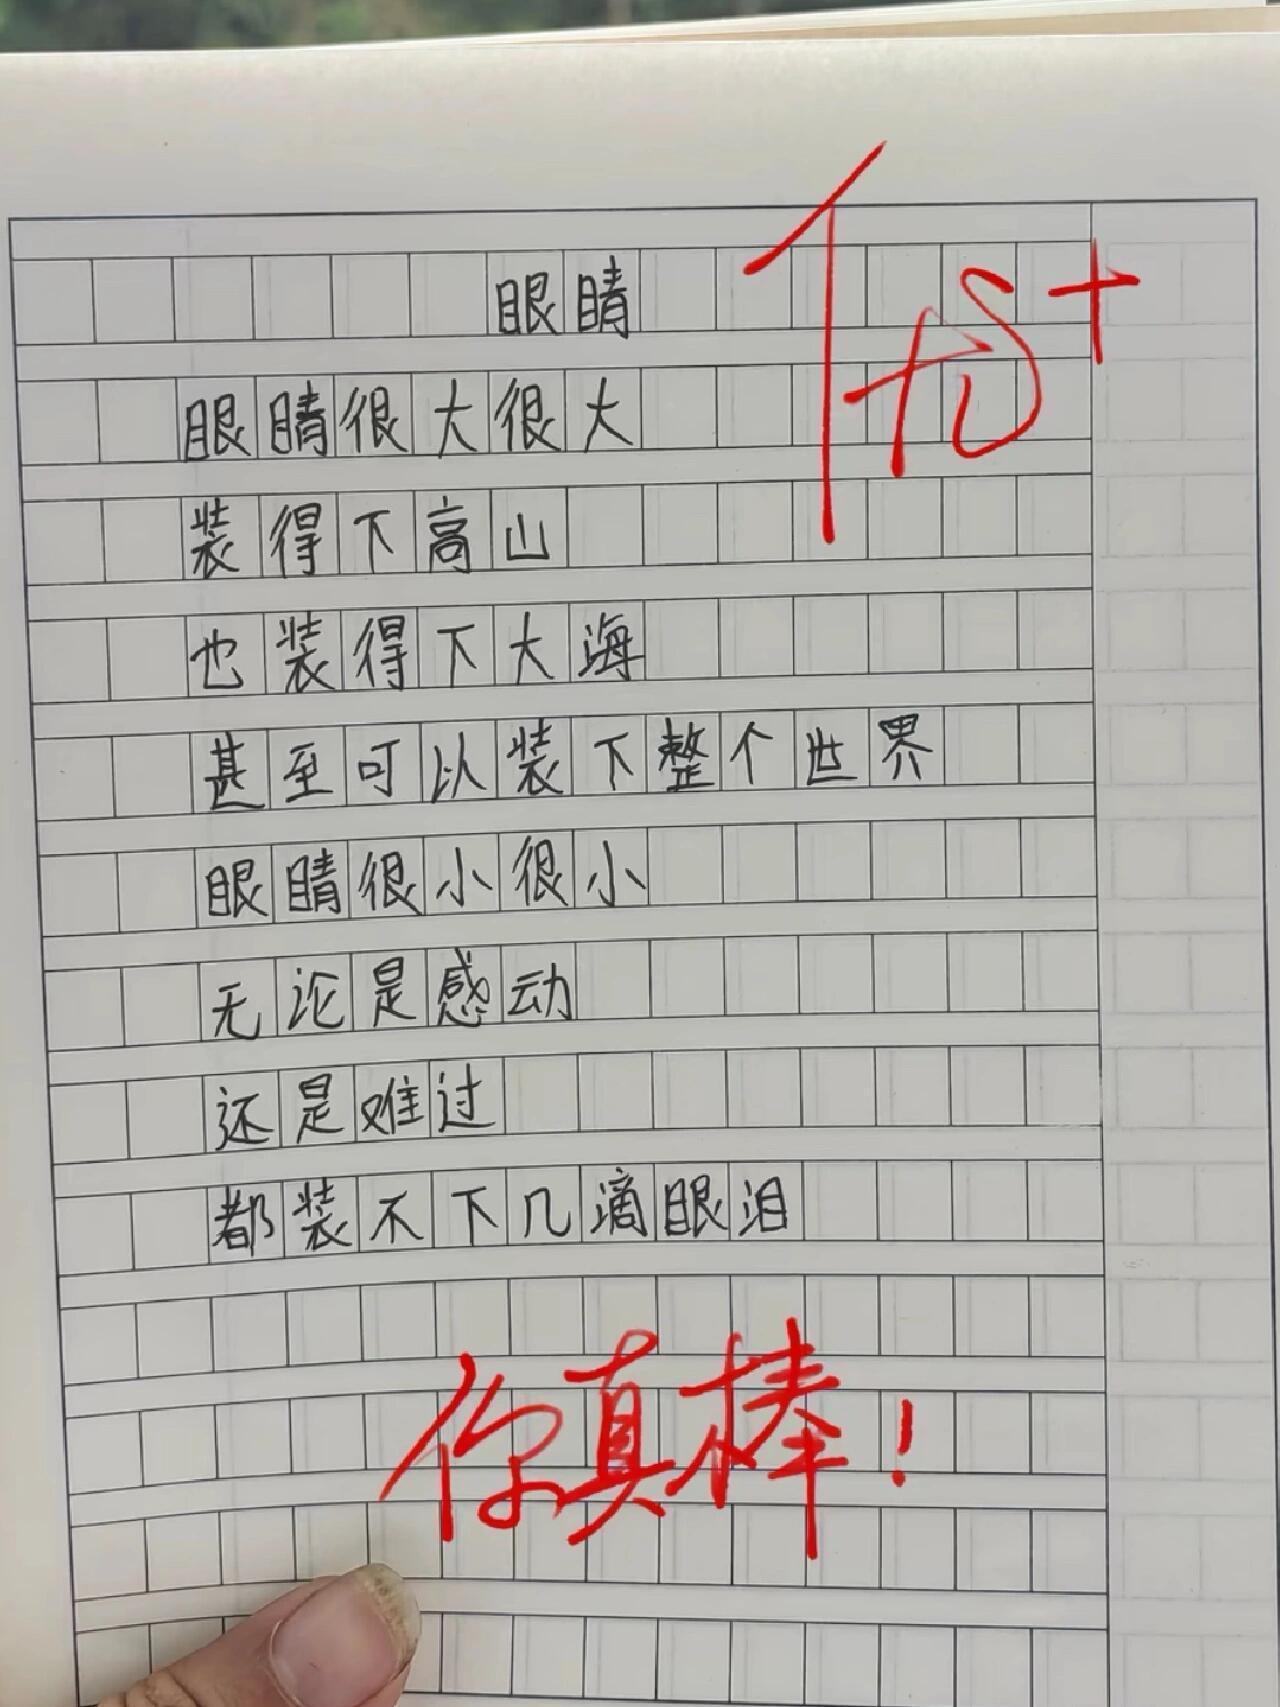 眼睛
优+
眼睛很大很大
装得下高山
也装得下大海
甚至可以装下整个世界
眼睛很小很小
无论是感动
还是难过
都装不下几滴眼泪
你真棒！